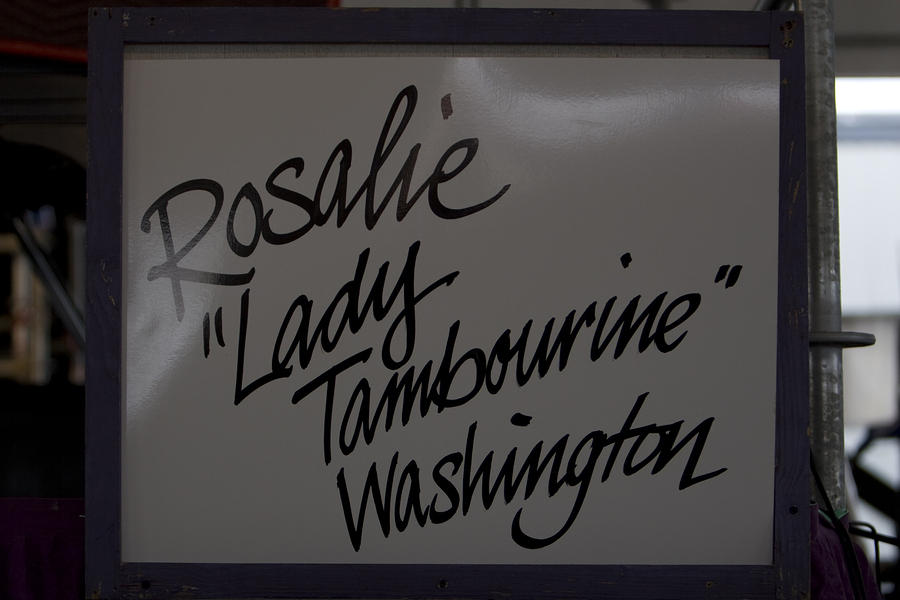 Rosalie
"Lady
Tambourine"
Washington